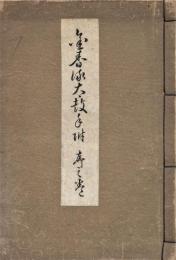 金春流太鼓手附 序之巻